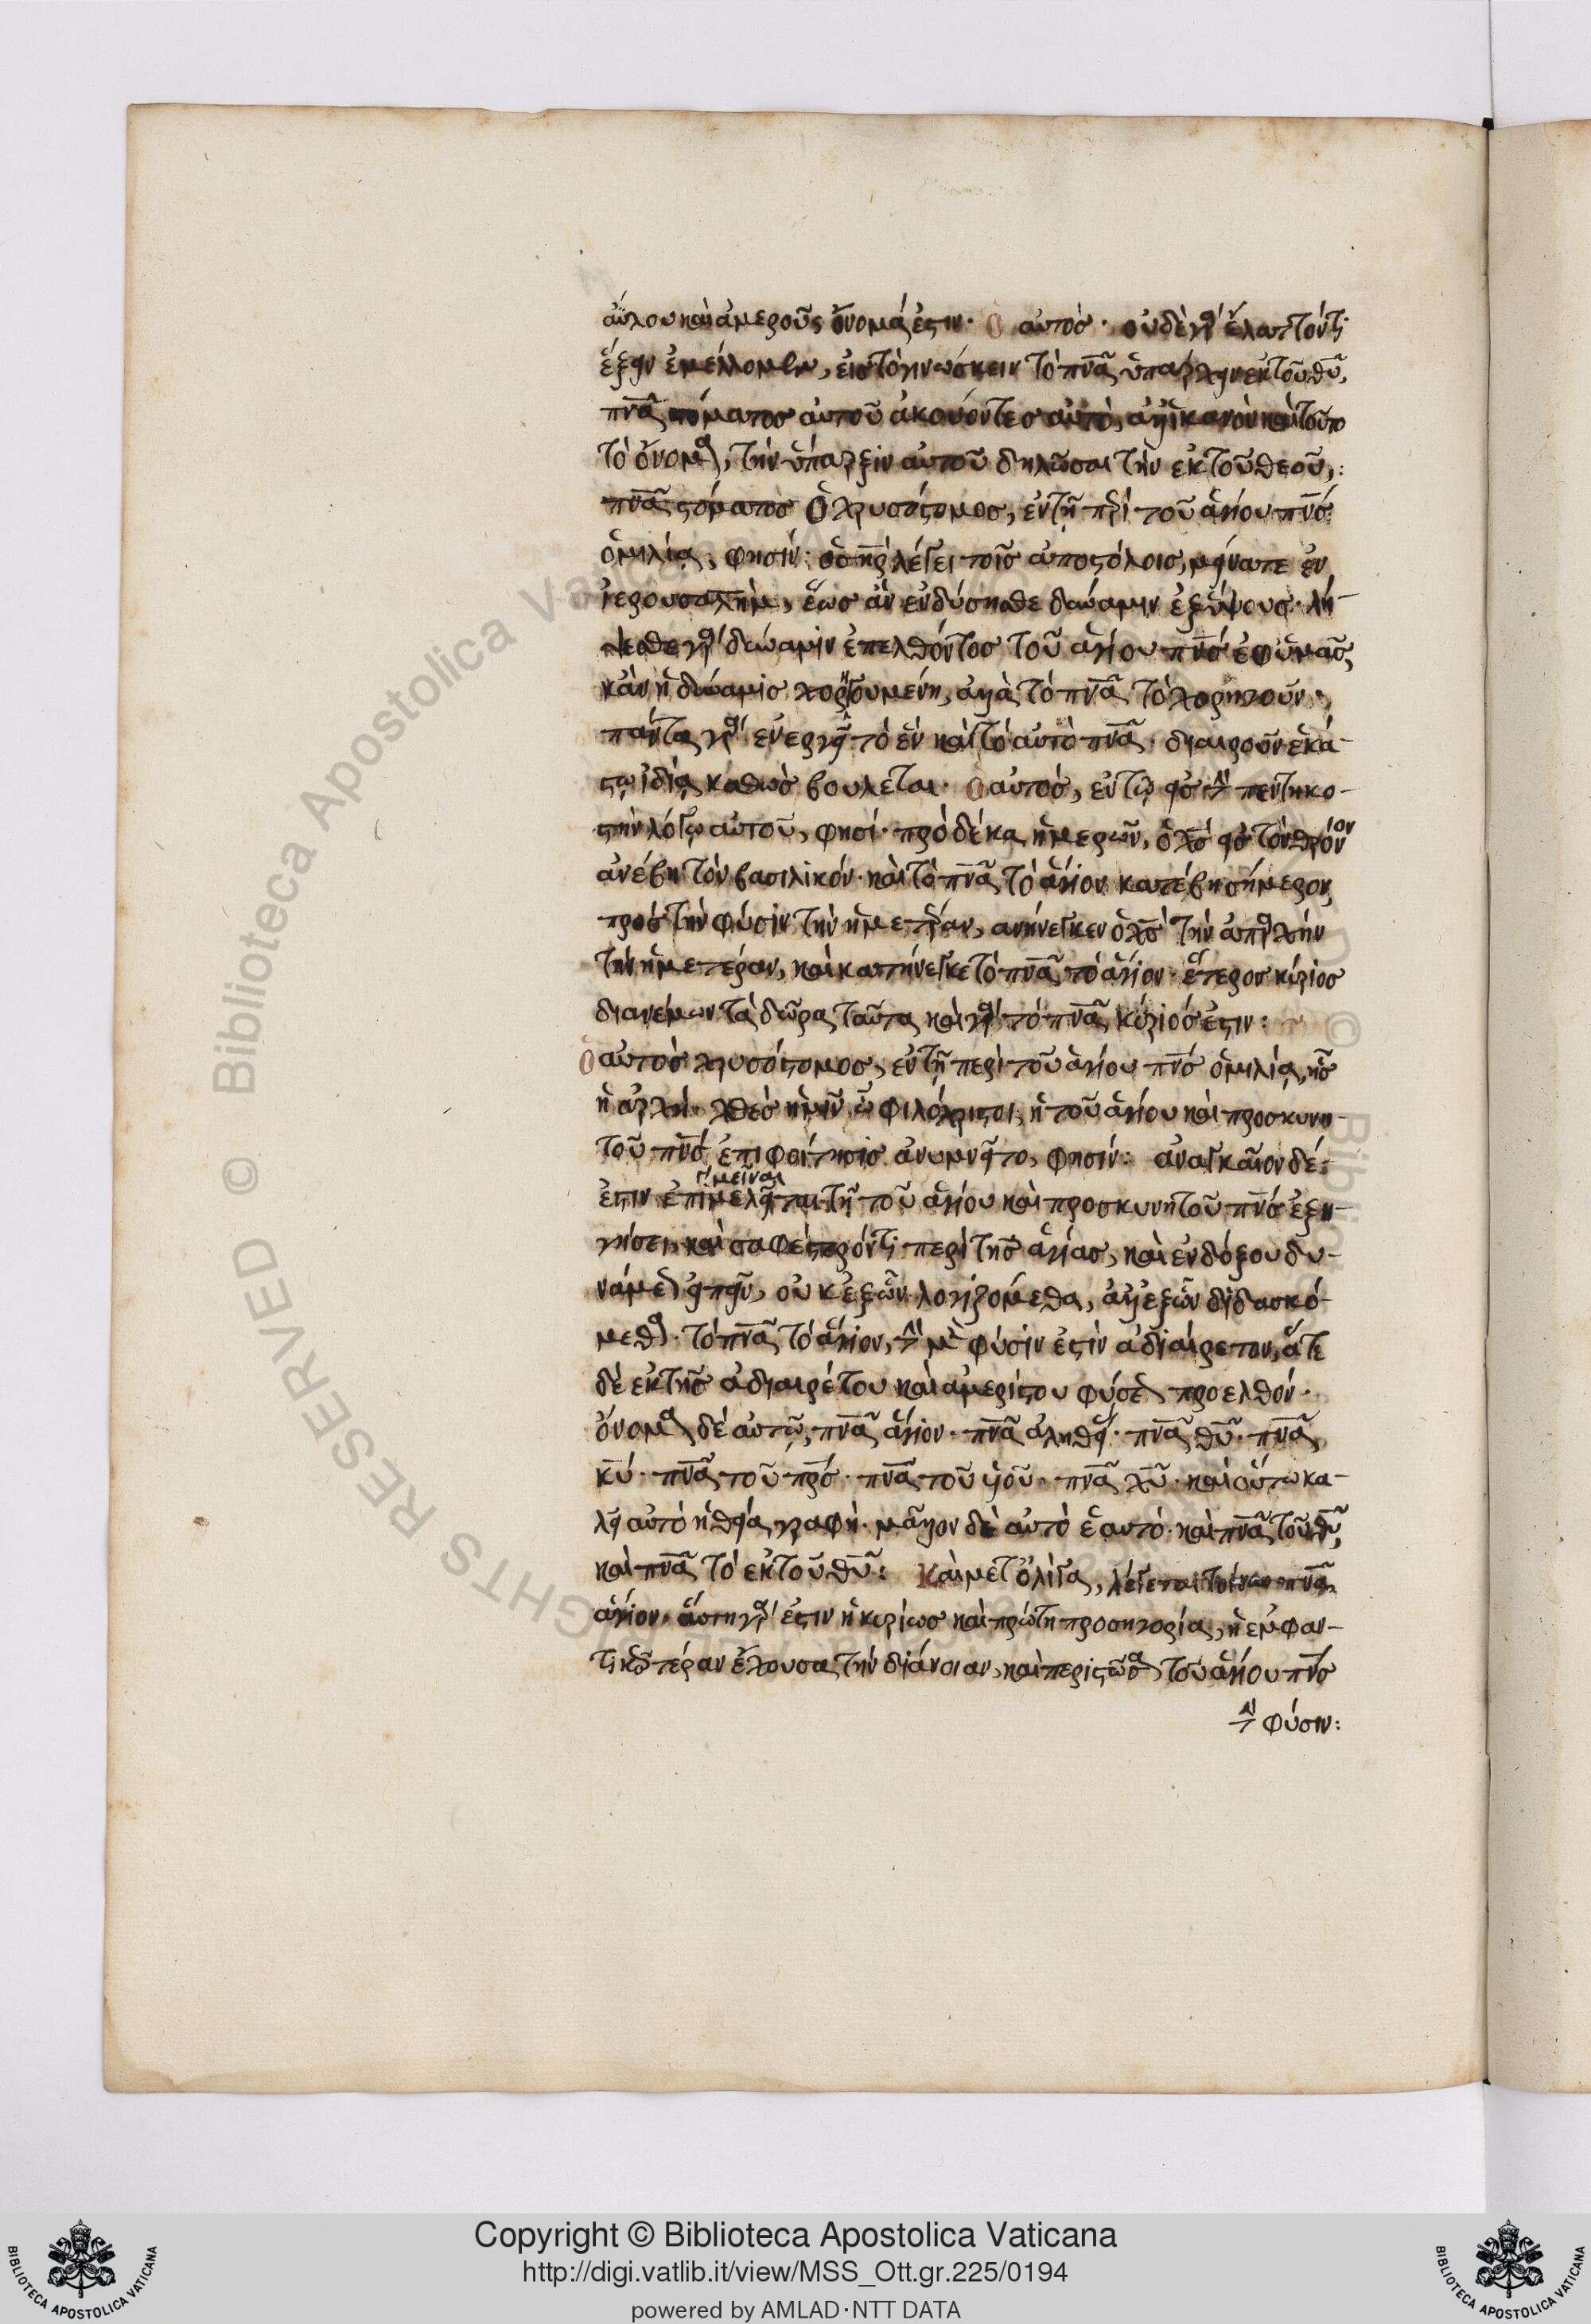 ἀύλου καὶ ἀμεροῦς ὄνομά ἐστιν· Ὁ αὐτός· οὐδὲ γὰρ ἔλαττόν τι
ἕξειν ἐμέλλομεν, εἰς τὸ γινώσκειν τὸ πνᾶ ὑπάρχειν ἐκ τοῦ θῦ,
πνᾶ στόματος αὐτοῦ ἀκούοντες αὐτό, ἀλλ' ἱκανὸν καὶ τοῦτο
τὸ ὄνομα, τὴν ὕπαρξιν αὐτοῦ δηλῶσαι τὴν ἐκ τοῦ θεοῦ,:
πνᾶ στόματος Ὁ χρυσόστομος, ἐν τῇ περὶ τοῦ ἁγίου πνς
ὁμιλίᾳ, φησίν: ὁ σὴρ λέγει τοῖς ἀποστόλοις, μείνατε ἐν
ἱερουσαλὴμ, ἕως ἂν ἐνδύσησθε δύναμιν ἐξ ὕψους· λή-
ψεσθε γὰρ δύναμιν ἐπελθόντος τοῦ ἁγίου πνς ἐφ' ὑμᾶς,
κἂν ἡ δύναμις χορηγουμένη, ἀλλὰ τὸ πνᾶ τὸ χορηγοῦν·
πάντα γὰρ ἐνεργεῖ τὸ ἓν καὶ τὸ αὐτὸ πνᾶ· διαιροῦν ἑκά-
στῳ ἰδίᾳ καθὼς βούλεται· Ὁ αὐτός, ἐν τῷ εἰς τὴν πεντηκο-
στὴν λόγῳ αὐτοῦ, φησί· πρὸ δέκα ἡμερῶν, ὁ χς εἰς τὸν θρόνον
ἀνέβη τὸν βασιλικόν· καὶ τὸ πνᾶ τὸ ἅγιον κατέβη σήμερον,
πρὸς τὴν φύσιν τὴν ἡμετέραν, ἀνήνεγκεν ὁ χς τὴν ἀπαρχὴν
τὴν ἡμετέραν, καὶ κατήνεγκε τὸ πνᾶ τὸ ἅγιον· ἕτερος κύριος
διανέμων τὰ δῶρα ταῦτα καὶ γὰρ τὸ πνᾶ κύριός ἐστιν:
Ὁ αὐτὸς χρυσόστομος, ἐν τῇ περὶ τοῦ ἁγίου πνς ὁμιλίᾳ, ἧς
ἡ ἀρχή· χθὲς ἡμῖν ὦ φιλόχριστοι, ἡ τοῦ ἁγίου καὶ προσκυνη-
τοῦ πνς ἐπιφοίτησις ἀνυμνεῖτο, φησίν: ἀναγκαῖον δέ:
ἐστιν ἐπιμεῖναι τῇ τοῦ ἁγίου καὶ προσκυνητοῦ πνς ἐξη-
γήσει, καὶ σαφέστερόν τι περὶ τῆς ἁγίας, καὶ ἐνδόξου δυ-
νάμεως εἰπεῖν, οὐκ ἐξ ὧν λογιζόμεθα, ἀλλ' ἐξ ὧν διδασκό-
μεθα· τὸ πνᾶ τὸ ἅγιον, τὴν μὲν φύσιν ἐστὶν ἀδιαίρετον, ἅτε
δὲ ἐκ τῆς ἀδιαιρέτου καὶ ἀμερίστου φύσεως προελθόν·
ὄνομα δὲ αὐτῷ, πνᾶ ἅγιον· πνᾶ ἀληθείας· πνᾶ θῦ· πνᾶ
κῦ· πνᾶ τοῦ πρς· πνᾶ τοῦ υἱοῦ· πνᾶ χῦ· καὶ οὕτω κα-
λεῖ αὐτὸ ἡ θεία γραφή· μᾶλλον δὲ αὐτὸ ἑαυτό· καὶ πνᾶ τοῦ θῦ,
καὶ πνᾶ τὸ ἐκ τοῦ θῦ: Καὶ μετ' ὀλίγα, λέγεται τοίνυν πνᾶ
ἅγιον· αὕτη γάρ ἐστιν ἡ κυρίως καὶ πρώτη προσηγορία, ἡ ἐμφαν-
τικωτέραν ἔχουσα τὴν διάνοιαν, καὶ παριστῶσα τοῦ ἁγίου πνς
τὴν φύσιν:
Copyright © Biblioteca Apostolica Vaticana
http://digi.vatlib.it/view/MSS_Ott.gr.225/0194
powered by AMLAD·NTT DATA